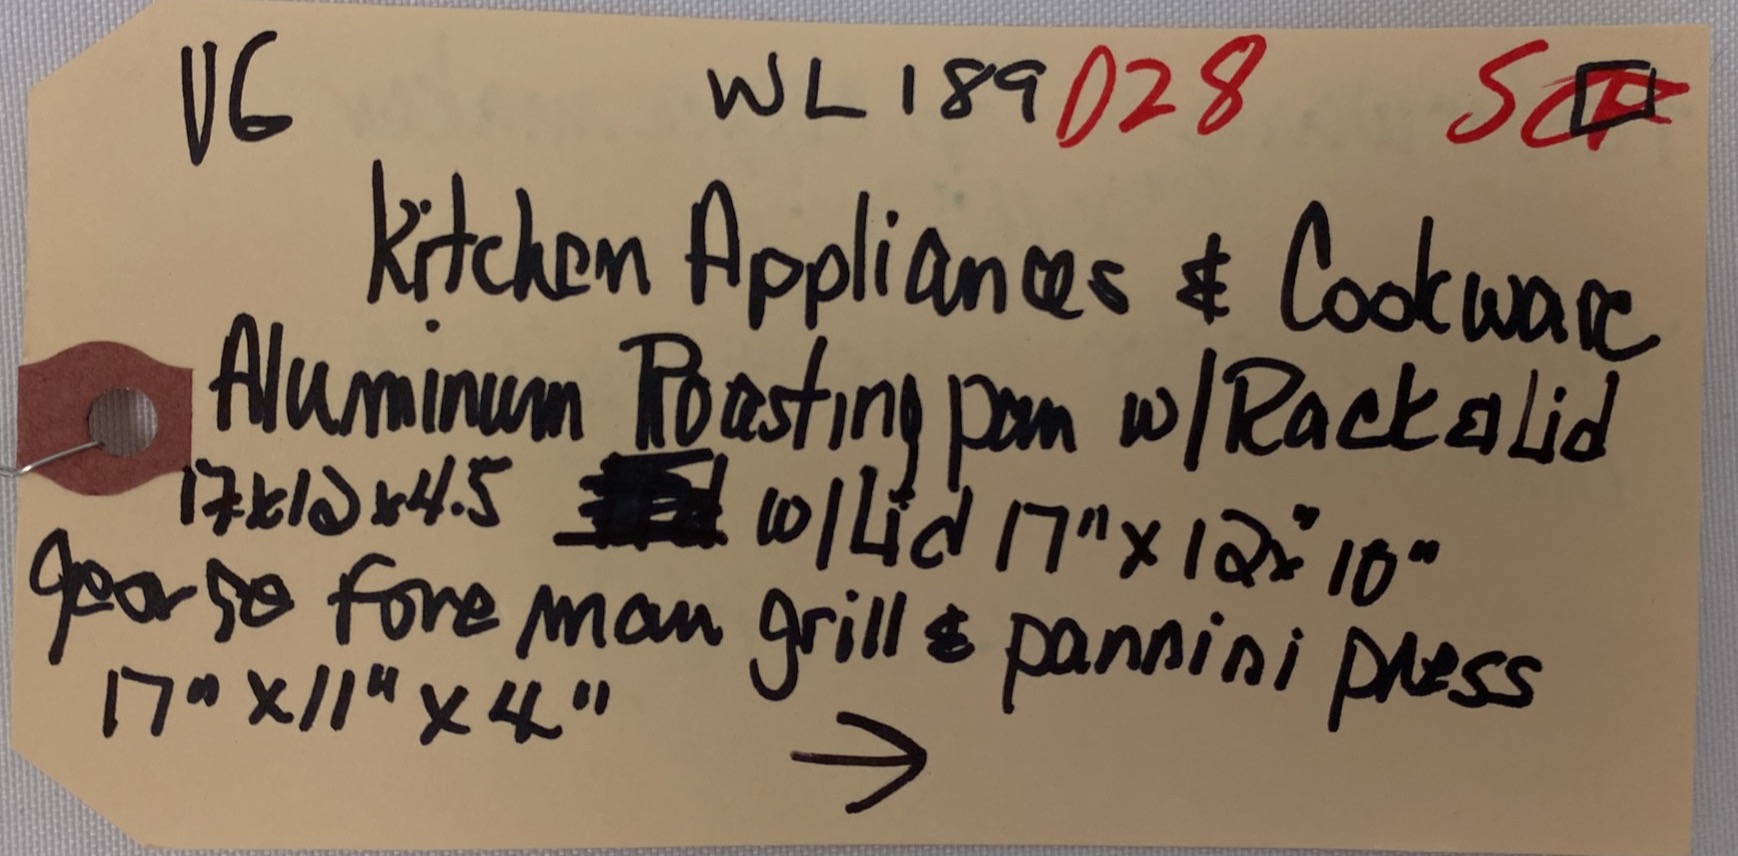 VG WL 189 D28
Kitchen Appliances & Cookware
Aluminum Roasting pan w/Rack & Lid
17x12x4.5 w/Lid 17" x 12x" 10"
george fore man grill & pannini press
17" x 11" x 4"
→